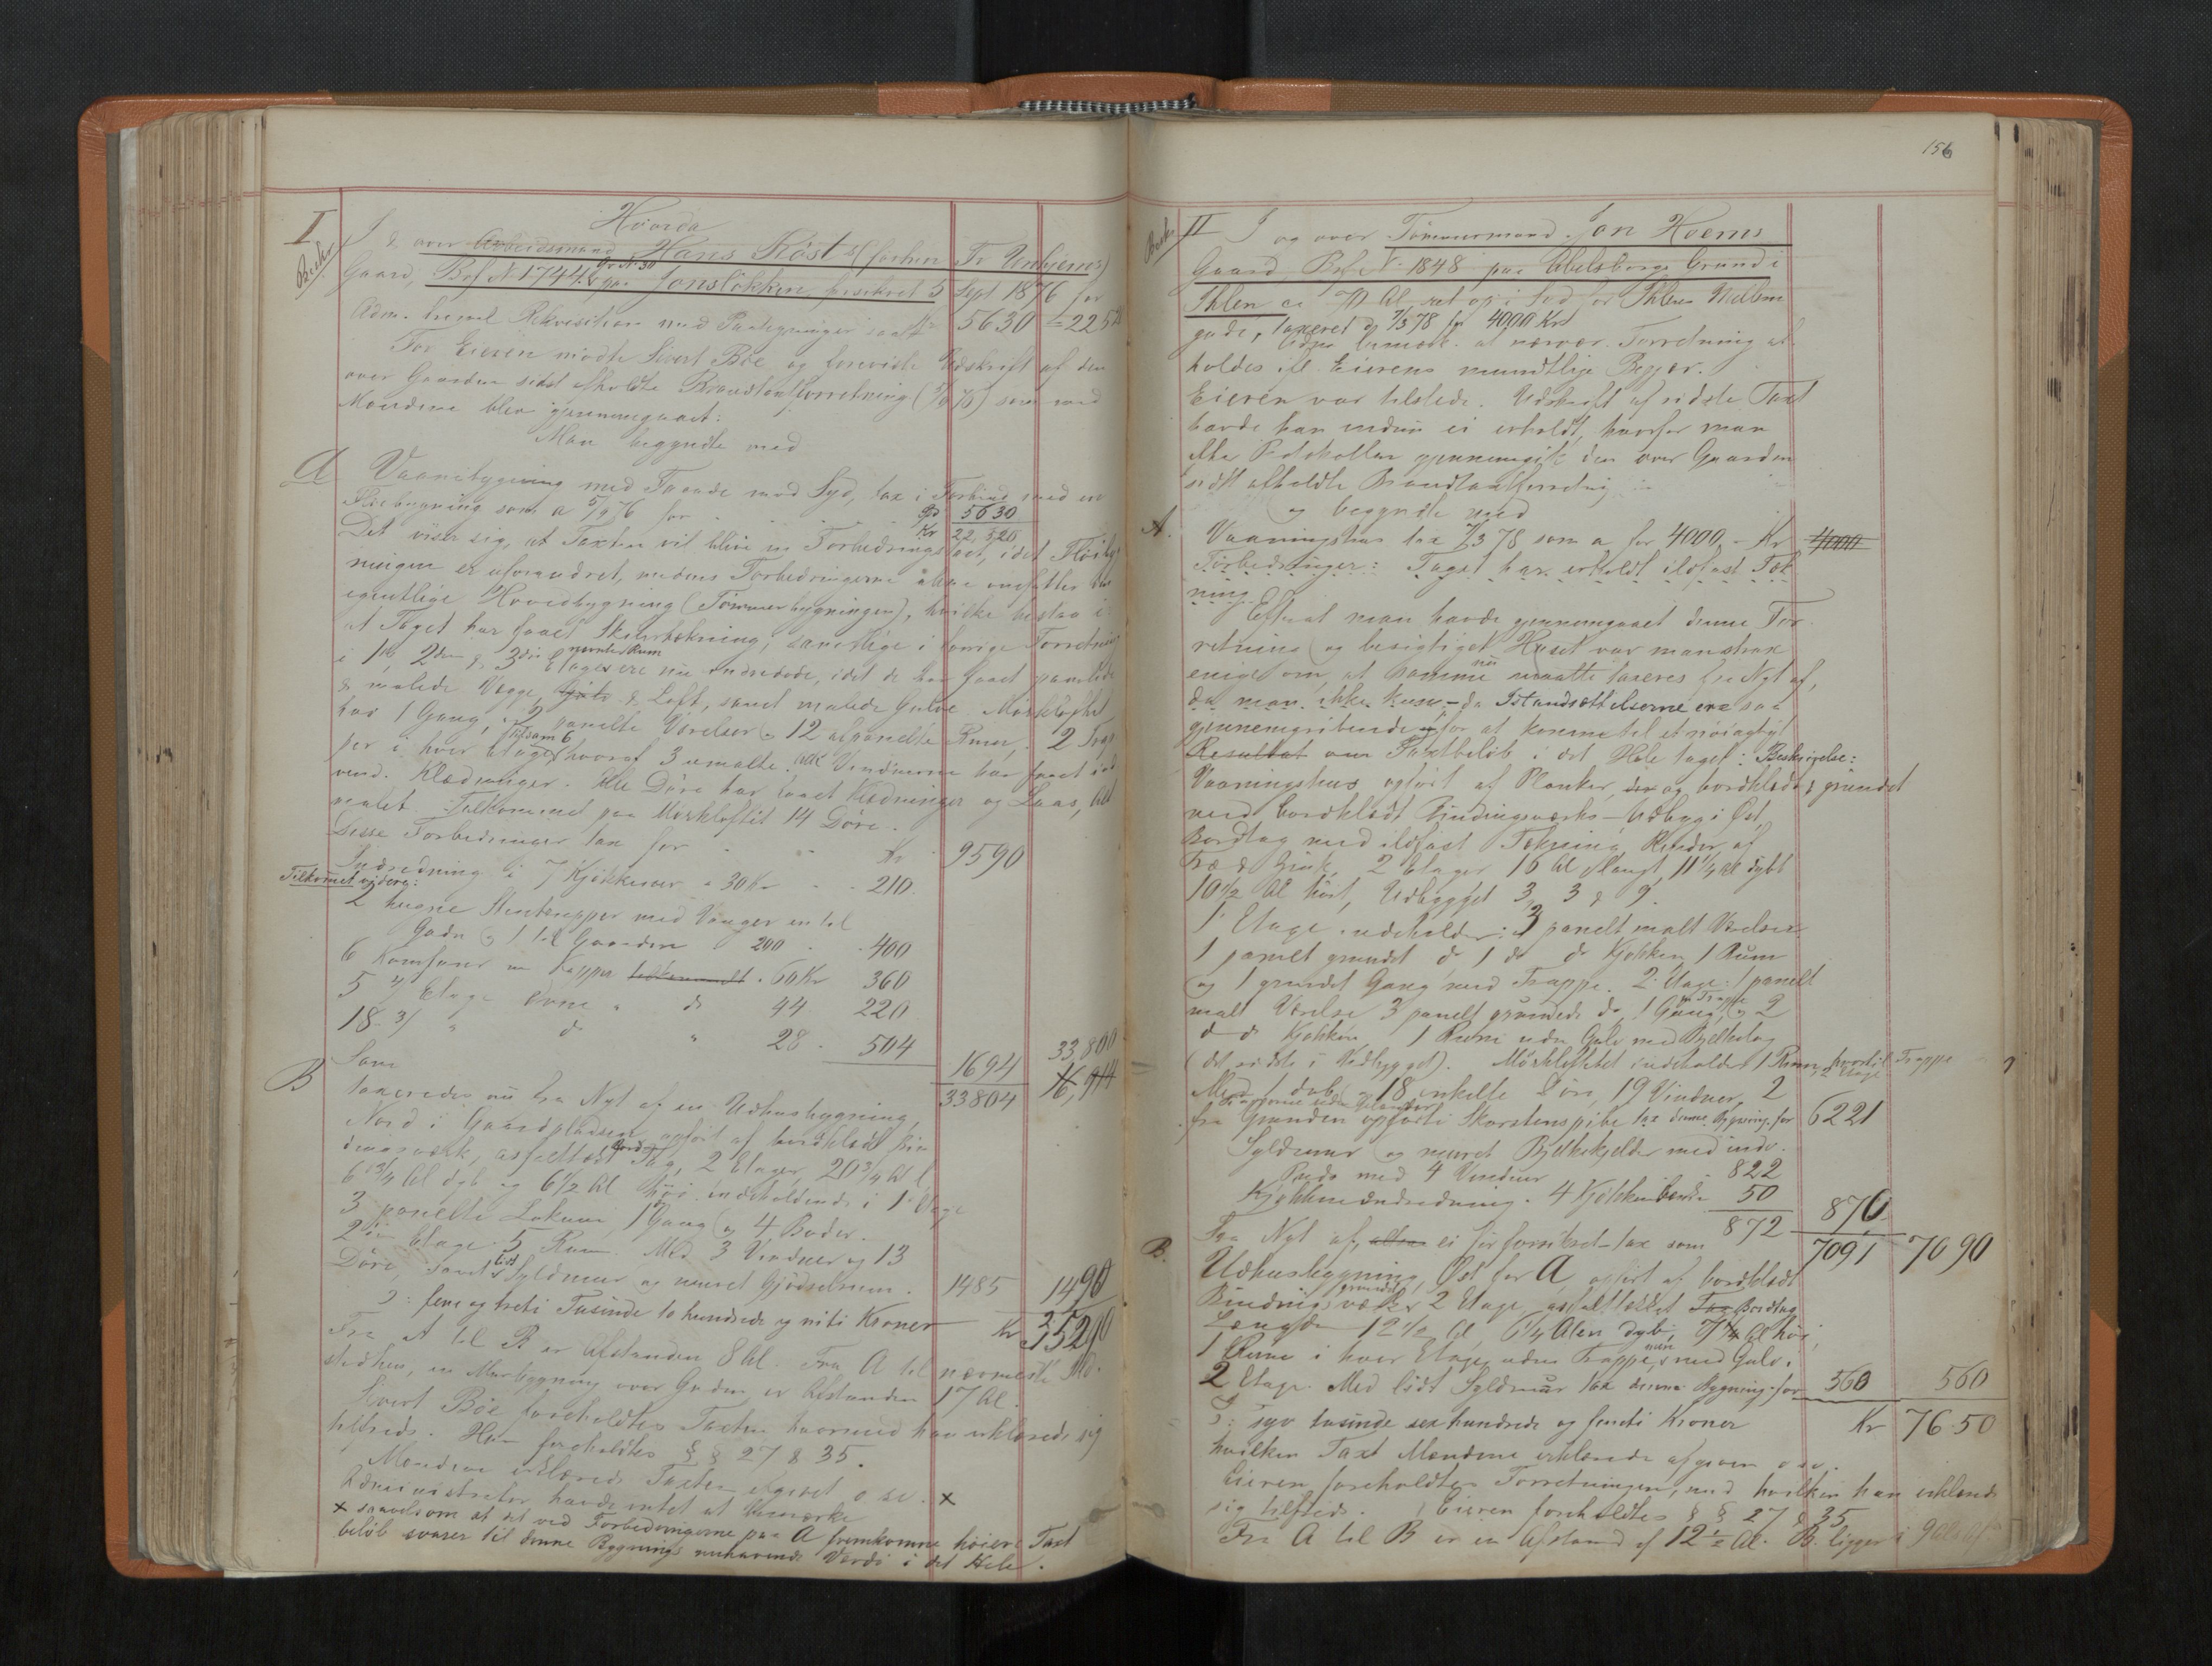 156
Hvorda
I
Beskr
I & over Arbeidsmand Hans Röst's (forhen Fr Unhjems)
Gaard, Brf N 1744 b Gr N 30 paa Jonsløkken, forsikret 5 Sept 1876 for
Adm. fremsl Rekvisition med Paategninger saalt 5630 = 22520
For Eieren mødte Sivert Böe og foreviste Udskrift af den
over Gaarden sidst afholdte Brandtaxtforretning (5/9 76) som med
Mændene blev gjennemgaaet:
Man begyndte med
A Vaanibygning med Facade mod Syd, tax i Forbind med en
Fløibygning som a 5/9 76 for Spd 5630
Kr 22,520
Det viser sig, at Taxten vil blive en Forbedringstaxt, idet Fløibyg
ningen er uforandret, medens Forbedringerne alene omfatter den
egentlige Hovedbygning (Tømmerbygningen), hvilke bestaa i:
At Taget har faaet Skifertækning, samtlige i forrige Forretning
i 1ste, 2den & 3die Etage nævnte Rum ere nu indredede, idet de har faaet panelede
& malede Vægge, Gulv & Loft, samt malede Gulve. Mørkloftet
har 1 Gang, 2 panelte Værelser og 12 afpanelte Rum, 2 Trap
per i hver Etage tilsam 6 hvoraf 3 umalte. Alle Vinduerne har faaet ind
vend. Klædninger. Alle Døre har faaet Klædninger og Laas, Alt
malet. Tilkommet paa Mørkloftet 14 Døre.
Disse Forbedringer tax for Kr 9590
Indredning i 7 Kjøkkener a 30 Kr 210
Tilkommet videre:
2 hugne Stentrapper med Vanger en til
Gaden og 1 til Gaarden 200 400
6 Komfurer m Kapper tilkommet a 60 Kr 360
5 4/ Etage Ovne a d 44 220
18 3/ " d " 28 504
Sum 1694 33,800
33804 16,914
B taxeredes nu fra Nyt af en Udhusbygning,
Nord i Gaardspladsen opført af bordklædt Bin
dingsværk, asfalttækt Bord Tag, 2 Etager, 20 3/4 Al l,
6 3/4 Al dyb og 6 1/2 Al høi indeholdende i 1 Etage
3 panelte Lokum, 1 Gang og 4 Boder.
2den Etage 5 Rum. Med 3 Vinduer og 13
Døre, samt lidt Syldmur og muret Gjødselrum. 1485 1490
ɔ: fem og treti Tusinde to hundrede og niti Kroner Kr 35290
Fra A til B er Afstanden 8 Al. Fra A til nærmeste Ild
stedhus, en Murbygning over Gaden, er Afstanden 17 Al.
Sivert Böe foreholdtes Taxten hvormed han erklærede sig
tilfreds. Han foreholdtes §§ 27 & 35.
Mændene erklærede Taxten afgivet o sv. x
Administrator havde intet at bemærke
x saavelsom at det ved Forbedringerne paa A fremkomne høiere Taxt
beløb svarer til denne Bygnings nuhavende Værdi i det Hele.
II
Beskr
I og over Tømmermand Jon Hoems
Gaard, Brf N 1848 paa Abelsborgs Grund i
Ihlen ca 70 Al ret op i Syd for Ihlens Mellem
gade, taxeret d 7/3 78 for 4000 Kr
Adm bemærk. at nærvær. Forretning af
holdes ifl Eierens mundtlige Begjær.
Eieren var tilstede. Udskrift af sidste Taxt
havde han endnu ei erholdt, hvorfor man
efter Protokollen gjennemgik den over Gaarden
sidst afholdte Brandtaxtforretning
og begyndte med
A. Vaaningshus tax 7/3 78 som a for 4000 - Kr 4000
Forbedringer: Taget har erholdt ildfast Tæk
ning
Efterat man havde gjennemgaaet denne For
retning og besigtiget Huset var man strax
enige om, at samme nu maatte taxeres fra Nyt af,
da man ikke kunde - da Istandsættelserne ere saa
gjennemgribende for at komme til et nøiagtigt
Resultat om Taxtbeløb i det Hele taget: Beskrivelse:
Vaaningshus opført af Planker, og bordklædt & grundet
med bordklædt Bindingsværks-Udbyg i Øst,
Bordtag med ildfast Tækning, Render af
Træ & Zink, 2 Etager 16 Al langt, 11 1/4 Al dybt
10 1/2 Al høit, Udbygget 3, 3 & 9.
1 Etage indeholder: 3 panelt malt Værelser
1 panelt grundet do 1 do do Kjøkken 1 Rum
og 1 grundet Gang med Trappe. 2. Etage: 1 panelt
malt Værelse 3 panelt grundede do, 1 Gang m Trappe, og 2
d d Kjøkken 1 Rum uden Gulv med Bjelkelag
(det sidste i Udbygget). Mørkloftet indeholder 1 Rum, hvortil Trappe
Med 1 dob. og 18 enkelte Døre, 19 Vinduer, 2
fra Grunden opførte Skorstenspibe tax denne Bygning for 6221
Syldmur og muret Bjelkekjelder med indv.
Puds med 4 Vinduer 822
Kjøkkenindredning. 4 Kjøkkenbænke 50 870
872 7091 7090
B. Fra Nyt af, ei før forsikret - tax som
Udhusbygning, Øst for A, opført af bordklædt
grundet Bindingsværk 2 Etage, asfalttækket Bordtag
Længde 12 1/2 Al, 6 1/4 Alen dyb, 7 1/4 Al høi,
1 Rum i hver Etage uden Trappe, men med Gulv i
2 Etage. Med lidt Syldmur tax denne Bygning for 560 560
ɔ: syv tusinde sex hundrede og femti Kroner Kr 7650
hvilken Taxt Mændene erklærede afgiven o sv.
Eieren foreholdtes Forretningen, med hvilken han erklærede
sig tilfreds. Eieren foreholdtes §§ 27 & 35
Fra A til B er en Afstand af 12 1/2 Al. B. ligger i